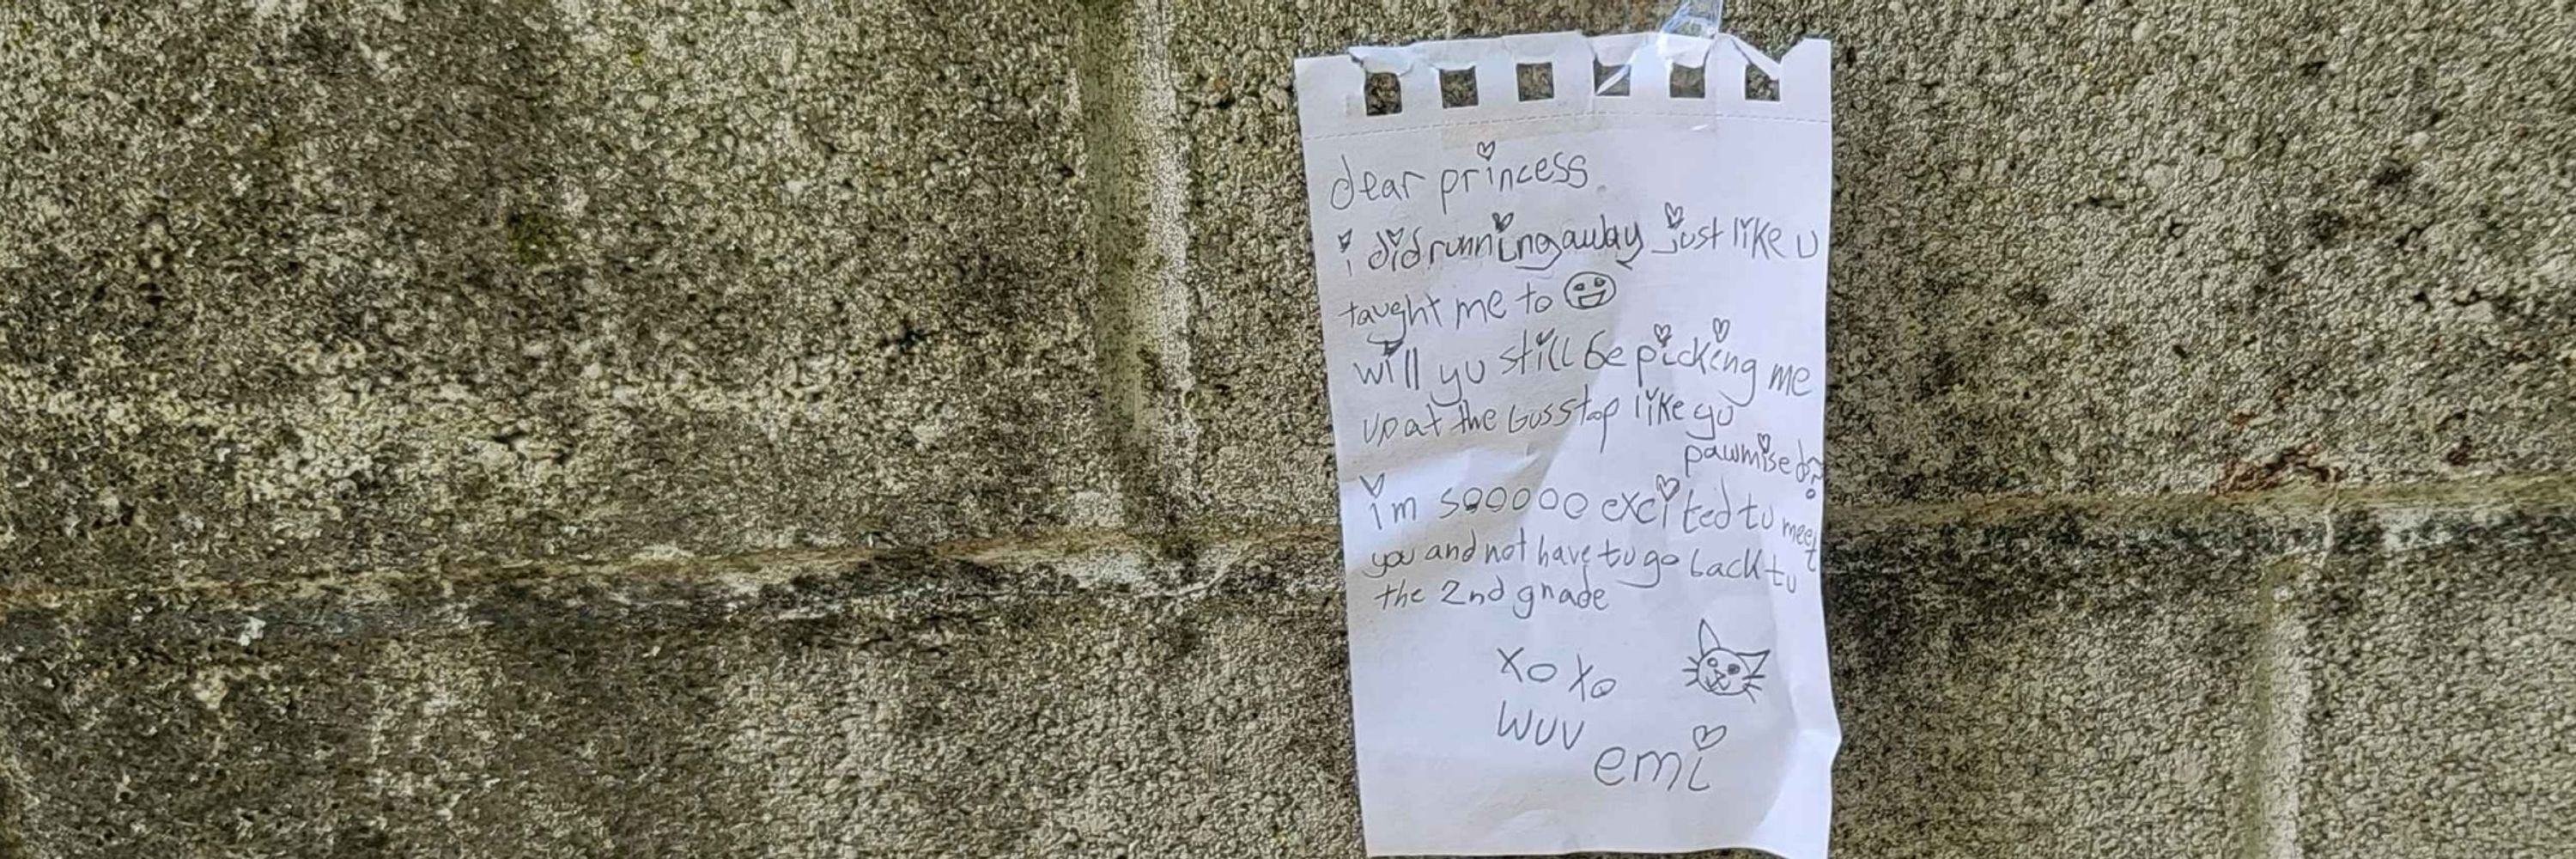 dear princess
i did running away just like u
taught me to
will yu still be picking me
up at the bus stop like yu
pawmised?
im sooooo excited tu meet
you and not have tu go back tu
the 2nd gnade
xoxo
wuv
emi